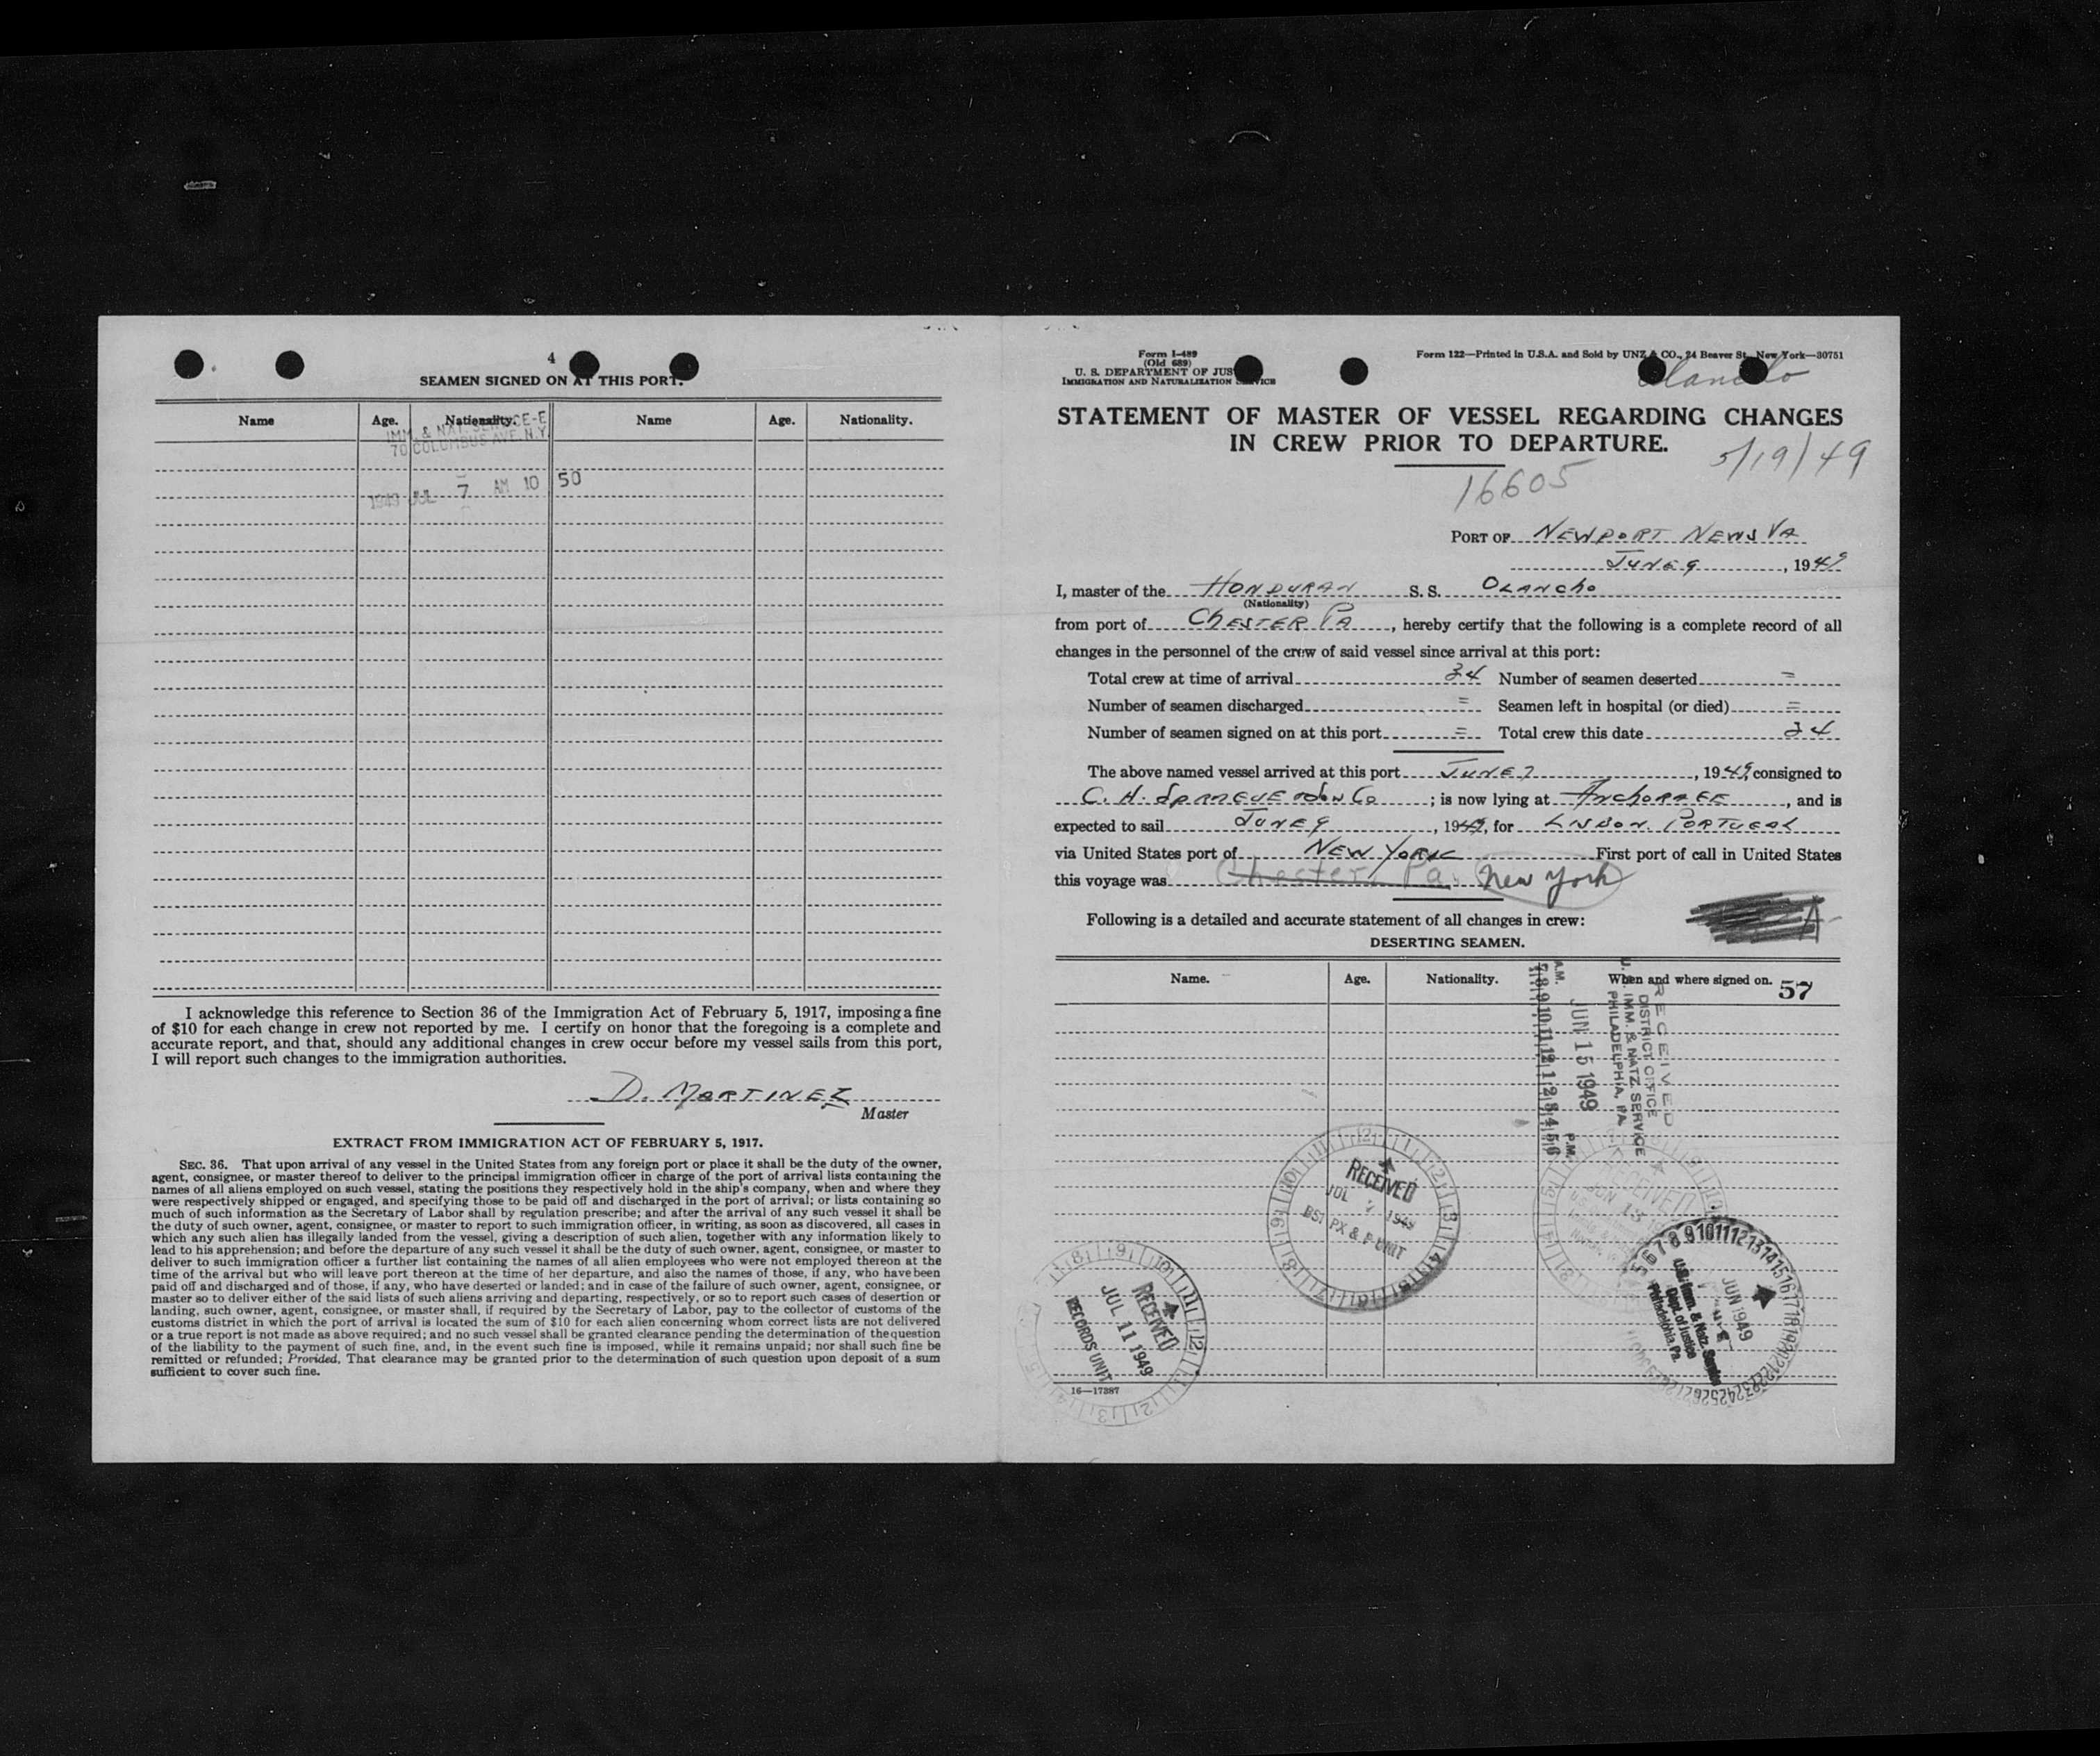 4
SEAMEN SIGNED ON AT THIS PORT.
Name Age. Nationality. Name Age. Nationality.
IMM. & NAT. SERVICE-E
70 COLUMBUS AVE. N.Y.
1949 JUL 7 AM 10 50
I acknowledge this reference to Section 36 of the Immigration Act of February 5, 1917, imposing a fine
of $10 for each change in crew not reported by me. I certify on honor that the foregoing is a complete and
accurate report, and that, should any additional changes in crew occur before my vessel sails from this port,
I will report such changes to the immigration authorities.
D. MARTINEZ
Master
EXTRACT FROM IMMIGRATION ACT OF FEBRUARY 5, 1917.
SEC. 36. That upon arrival of any vessel in the United States from any foreign port or place it shall be the duty of the owner,
agent, consignee, or master thereof to deliver to the principal immigration officer in charge of the port of arrival lists containing the
names of all aliens employed on such vessel, stating the positions they respectively hold in the ship's company, when and where they
were respectively shipped or engaged, and specifying those to be paid off and discharged in the port of arrival; or lists containing so
much of such information as the Secretary of Labor shall by regulation prescribe; and after the arrival of any such vessel it shall be
the duty of such owner, agent, consignee, or master to report to such immigration officer, in writing, as soon as discovered, all cases in
which any such alien has illegally landed from the vessel, giving a description of such alien, together with any information likely to
lead to his apprehension; and before the departure of any such vessel it shall be the duty of such owner, agent, consignee, or master to
deliver to such immigration officer a further list containing the names of all alien employees who were not employed thereon at the
time of the arrival but who will leave port thereon at the time of her departure, and also the names of those, if any, who have been
paid off and discharged and of those, if any, who have deserted or landed; and in case of the failure of such owner, agent, consignee, or
master so to deliver either of the said lists of such aliens arriving and departing, respectively, or so to report such cases of desertion or
landing, such owner, agent, consignee, or master shall, if required by the Secretary of Labor, pay to the collector of customs of the
customs district in which the port of arrival is located the sum of $10 for each alien concerning whom correct lists are not delivered
or a true report is not made as above required; and no such vessel shall be granted clearance pending the determination of the question
of the liability to the payment of such fine, and, in the event such fine is imposed, while it remains unpaid; nor shall such fine be
remitted or refunded; Provided, That clearance may be granted prior to the determination of such question upon deposit of a sum
sufficient to cover such fine.
Form I-489
(Old 689)
U. S. DEPARTMENT OF JUS
IMMIGRATION AND NATURALIZATION SERVICE
Form 122—Printed in U.S.A. and Sold by UNZ & CO., 24 Beaver St., New York—30751
Olancho
STATEMENT OF MASTER OF VESSEL REGARDING CHANGES
IN CREW PRIOR TO DEPARTURE.
5/19/49
16605
PORT OF NEWPORT NEWS VA
JUNE 9, 1949
I, master of the HONDURAN S. S. OLANCHO
(Nationality)
from port of CHESTER PA, hereby certify that the following is a complete record of all
changes in the personnel of the crew of said vessel since arrival at this port:
Total crew at time of arrival 34 Number of seamen deserted =
Number of seamen discharged = Seamen left in hospital (or died) =
Number of seamen signed on at this port = Total crew this date 34
The above named vessel arrived at this port JUNE 7, 1949, consigned to
C. H. SPRAGUE & SON CO; is now lying at ANCHORAGE, and is
expected to sail JUNE 9, 1949, for LISBON. PORTUGAL
via United States port of NEW YORK First port of call in United States
this voyage was Chester, Pa. New York
Following is a detailed and accurate statement of all changes in crew:
DESERTING SEAMEN.
Name. Age. Nationality. When and where signed on. 57
RECEIVED
DISTRICT OFFICE
U. S. IMM. & NATZ. SERVICE
PHILADELPHIA, PA.
JUN 15 1949
A.M. P.M.
7 8 9 10 11 12 1 2 3 4 5 6
RECEIVED
JUL 7 1949
BSI PX & P UNIT
RECEIVED
JUN 13
RECEIVED
JUL 11 1949
RECORDS UNIT
JUN 1949
U.S. Imm. & Natz. Service
Dept. of Justice
Philadelphia, Pa.
16—17387